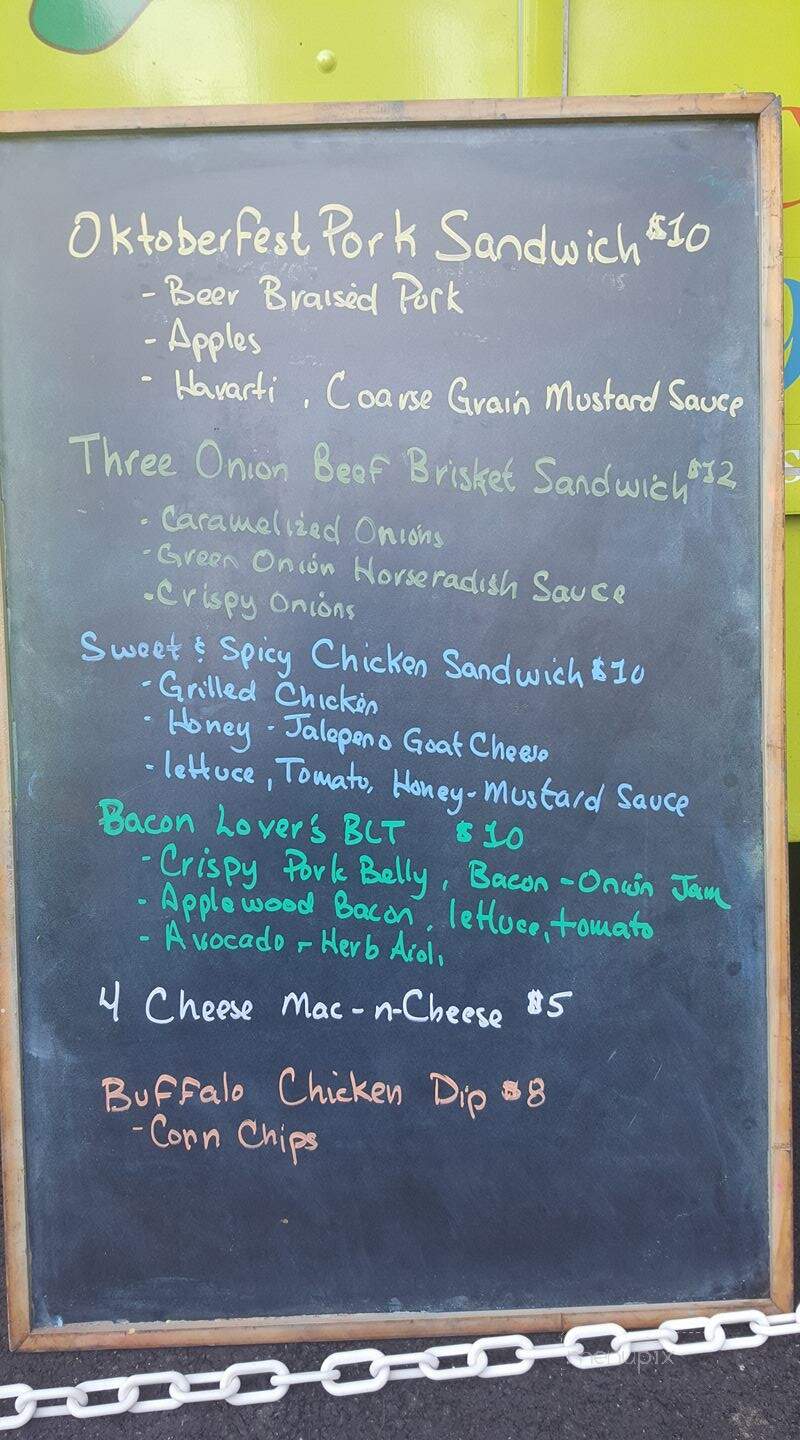 Oktoberfest Pork Sandwich $10
- Beer Braised Pork
- Apples
- Havarti, Coarse Grain Mustard Sauce
Three Onion Beef Brisket Sandwich $12
- Caramelized Onions
- Green Onion Horseradish Sauce
- Crispy Onions
Sweet & Spicy Chicken Sandwich $10
- Grilled Chicken
- Honey - Jalepeno Goat Cheese
- lettuce, Tomato, Honey-Mustard Sauce
Bacon Lover's BLT $10
- Crispy Pork Belly, Bacon-Onion Jam
- Applewood Bacon, lettuce, tomato
- Avocado - Herb Aioli
4 Cheese Mac-n-Cheese $5
Buffalo Chicken Dip $8
- Corn Chips
menupix